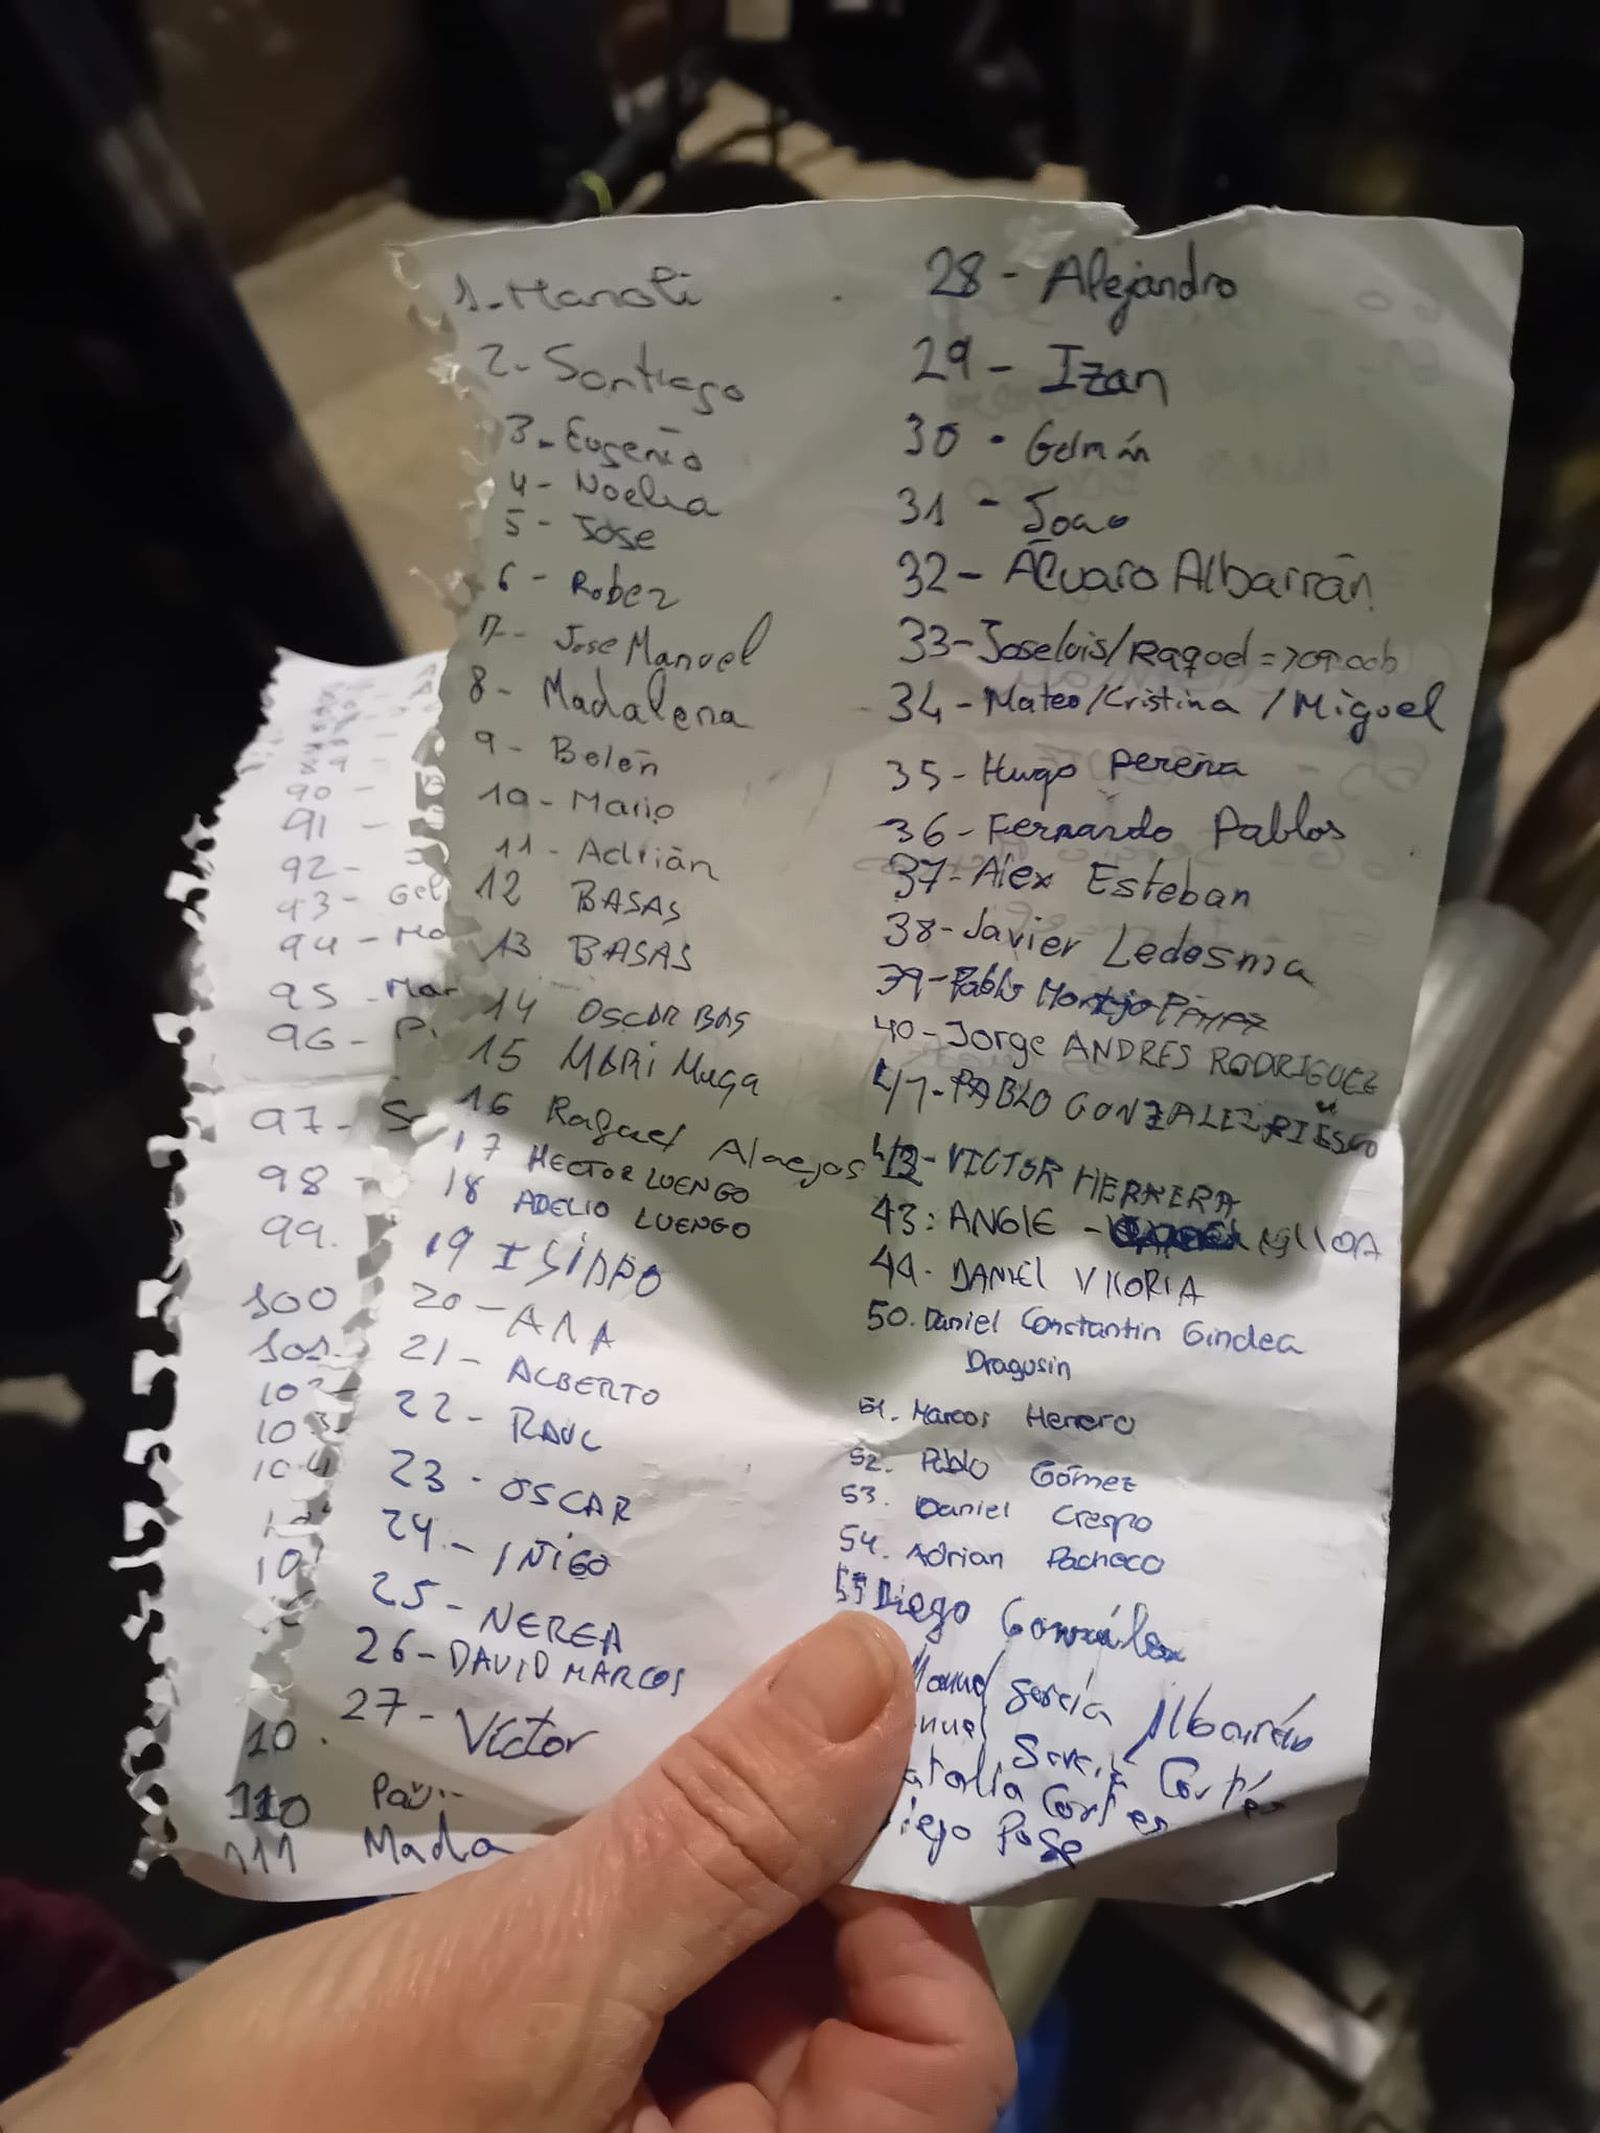 1-Manoli
2-Santiago
3-Eugenio
4-Noelia
5-Jose
6-Robez
7-Jose Manuel
8-Madalena
9-Belén
10-Mario
11-Adrián
12 BASAS
13 BASAS
14 OSCAR BAS
15 MARI Muga
16 Rafael Alaejos
17 HECTOR LUENGO
18 ADELIO LUENGO
19 ISIDRO
20-ANA
21-ALBERTO
22-RAUL
23-OSCAR
24-IÑIGO
25-NEREA
26-DAVID MARCOS
27-Víctor
28-Alejandro
29-Izan
30-Germán
31-Joao
32-Álvaro Albarrán
33-Joseluis/Raquel
34-Mateo/Cristina/Miguel
35-Hugo Pereña
36-Fernando Pablos
37-Alex Esteban
38-Javier Ledesma
39-Pablo Montejo
40-Jorge ANDRES RODRIGUEZ
41-PABLO GONZALEZ RIESCO
42-VICTOR HERRERA
43: ANGIE -
44- DANIEL VITORIA
50. Daniel Constantin Gindea
Dragusin
51. Marcos Herrero
52. Pablo Gómez
53. Daniel Crespo
54. Adrian Pacheco
55 Diego González
Manuel García Albarrán
Cortés
Cortes
Pose
90-
91-
92-
93- Gel
94-Ma
95-Mar
96-
97-
98-
99.
100
101.
102
103
104
110
111 Mada